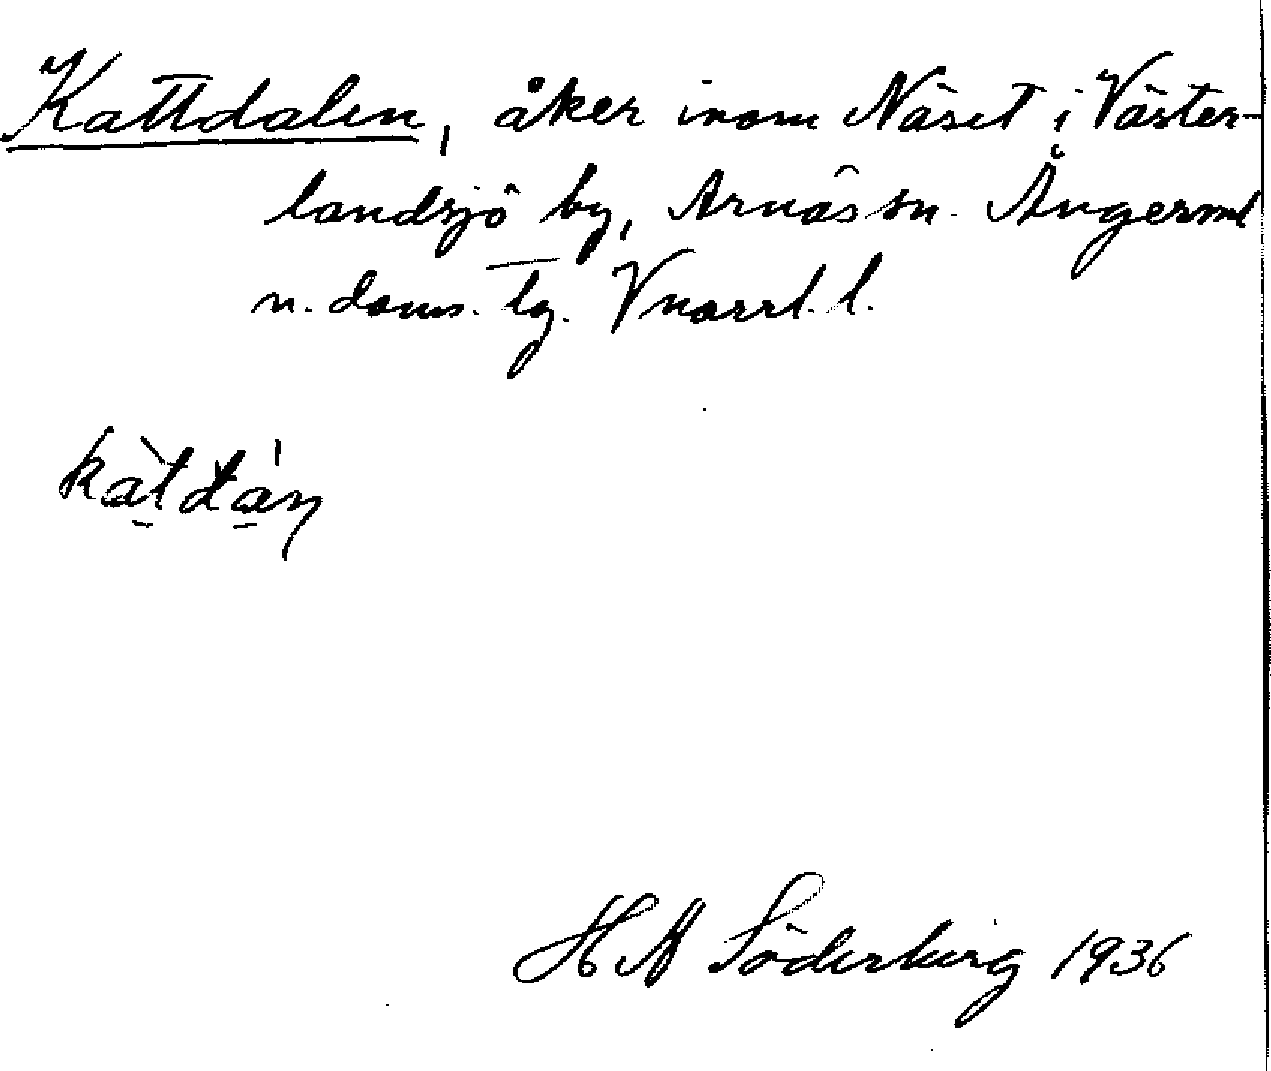 Kattdalen, åker inom Näset i Väster-
landsjö by, Arnäs sn. Ångerml
n. doms. lg. Vnorrl. l.
H N Söderberg 1936